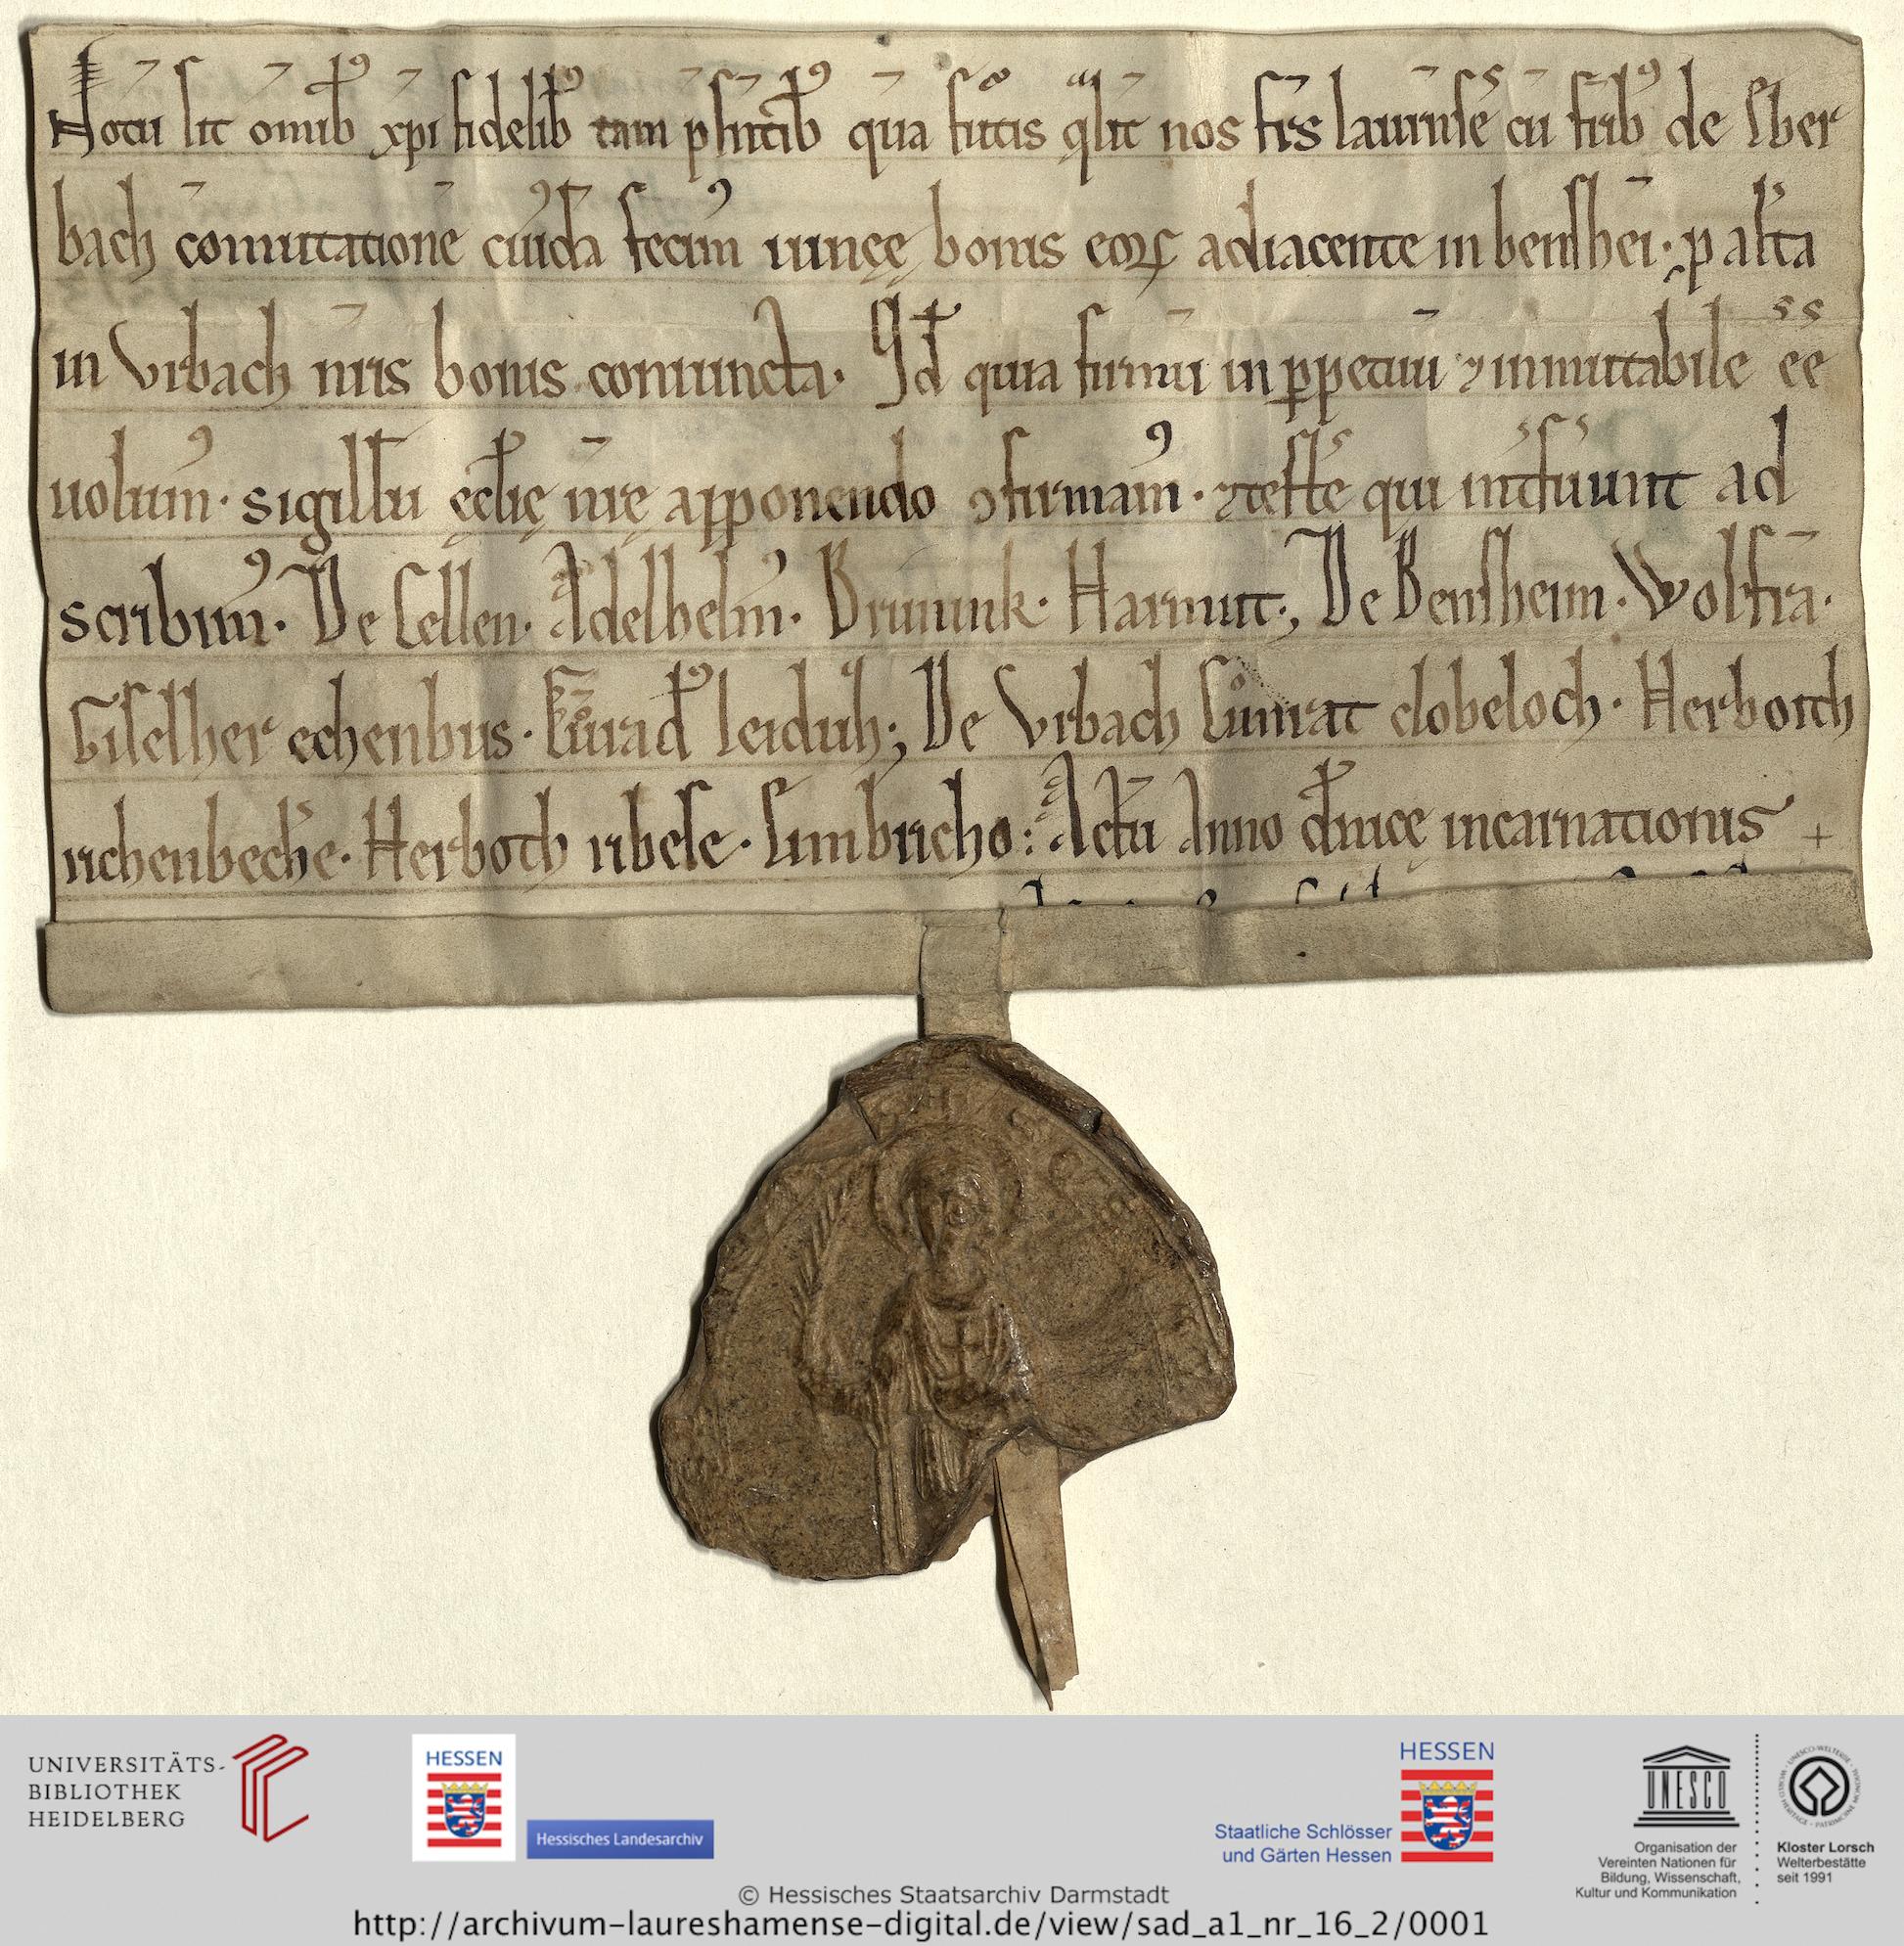 Notū sit om̄ib᷒ xp̄i fidelib᷒ tam p̄sītib᷒ quā futis qͣlit̄ nos fr̄s laurīnsēs cū frīb᷒ de Eber
bach cōmutationē cui᷒dā fecim᷒ uineę bonis eoꝝ adiacente in bensheī· ꝑ alt̓a
in Vrbach nr̄is bonis coniuncta· Sꝫ quia firmū in ꝑpetuū ⁊ inmutabile ee
uolum᷒· sigillū ęcl̄ię nr̄ę apponendo ꝯfirmam᷒· ⁊ testes qui int̓fuunt ad
scribim᷒· De Cellen· Adelhelm᷒· Brunink· Harmut·, De Bensheim· Wolfrā·
Giselher echenbus· Cūrad᷒ leiduh·; De Vrbach Cunrat clobeloch· Herborth
richenbech̓e· Herboth ribese· Simbricho: Actū Anno dn̄icę incarnationis
UNIVERSITÄTS-
BIBLIOTHEK
HEIDELBERG
HESSEN
Hessisches Landesarchiv
HESSEN
Staatliche Schlösser
und Gärten Hessen
UNESCO
Organisation der
Vereinten Nationen für
Bildung, Wissenschaft,
Kultur und Kommunikation
Kloster Lorsch
Welterbestätte
seit 1991
© Hessisches Staatsarchiv Darmstadt
http://archivum-laureshamense-digital.de/view/sad_a1_nr_16_2/0001